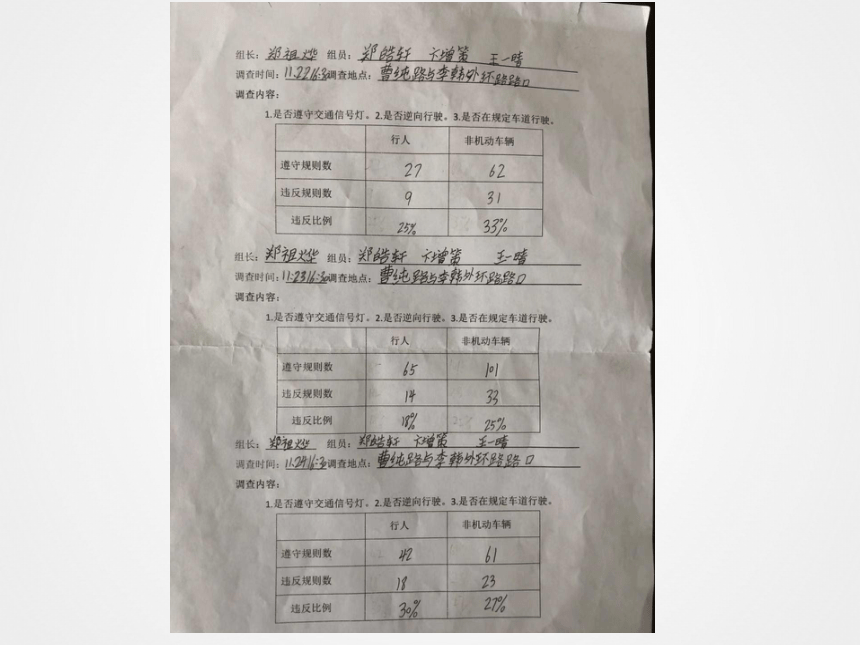 组长：郑祖烨 组员：郑皓轩 卞增策 王一晴
调查时间：11.22 16:30 调查地点：曹纯路与李韩外环路路口
调查内容：
1.是否遵守交通信号灯。2.是否逆向行驶。3.是否在规定车道行驶。
行人 非机动车辆
遵守规则数 27 62
违反规则数 9 31
违反比例 25% 33%
组长：郑祖烨 组员：郑皓轩 卞增策 王一晴
调查时间：11.23 16:30 调查地点：曹纯路与李韩外环路路口
调查内容：
1.是否遵守交通信号灯。2.是否逆向行驶。3.是否在规定车道行驶。
行人 非机动车辆
遵守规则数 65 101
违反规则数 14 33
违反比例 18% 25%
组长：郑祖烨 组员：郑皓轩 卞增策 王一晴
调查时间：11.24 16:30 调查地点：曹纯路与李韩外环路路口
调查内容：
1.是否遵守交通信号灯。2.是否逆向行驶。3.是否在规定车道行驶。
行人 非机动车辆
遵守规则数 42 61
违反规则数 18 23
违反比例 30% 27%